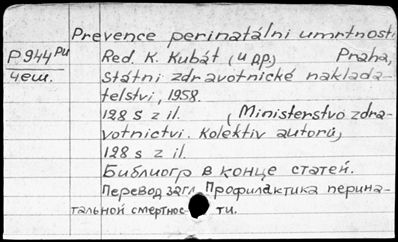 Prevence perinatálni umrtnosti
P944 Pu
чеш.
Red. K. Kubát (и др) Praha,
státni zdravotnické naklada-
telstvi, 1958.
128 s z il. (Ministerstvo zdra-
votnictvi. Kolektiv autorů)
128 s z il.
Библиогр в конце статей.
Перевод загл Профилактика перина-
тальной смертнос- ти.